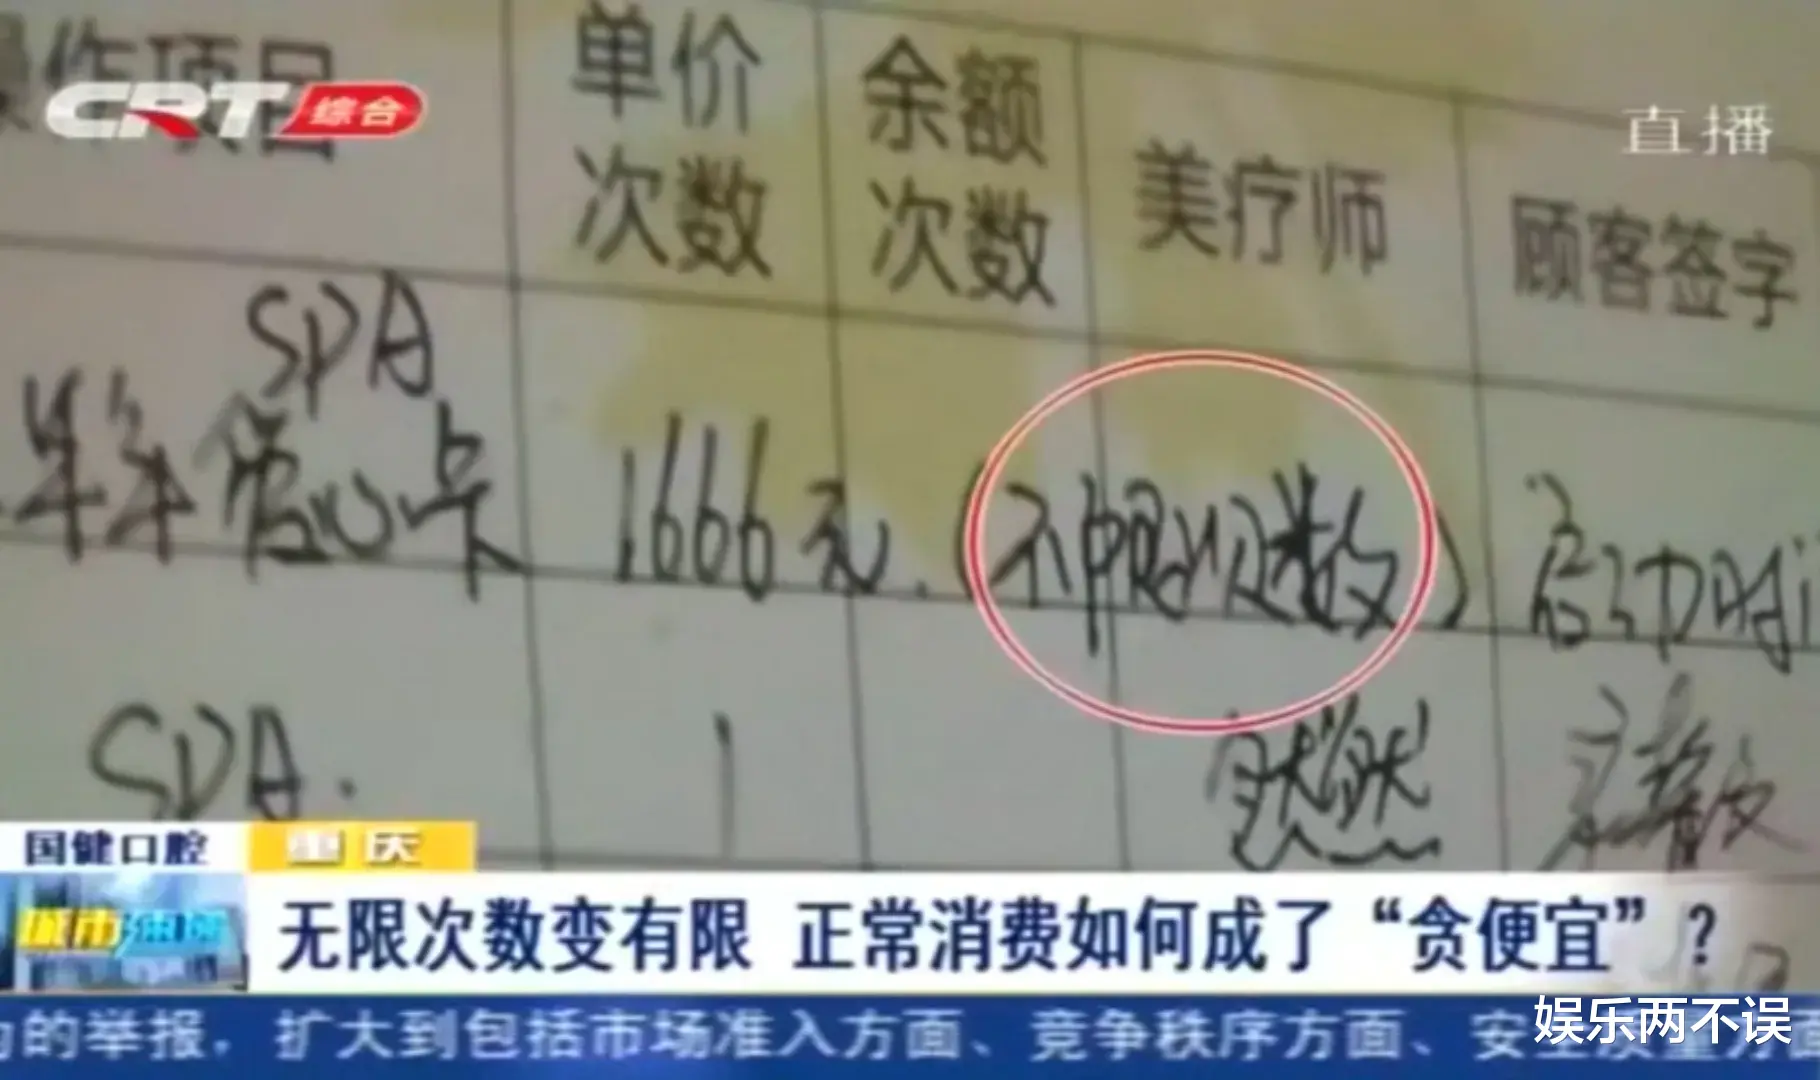 操作项目
CRT 综合
单价
次数
余额
次数
美疗师
顾客签字
直播
SPA
卡 1666元.(不限次数) 启动时
SPA. 1
国健口腔 重庆
无限次数变有限 正常消费如何成了“贪便宜”?
的举报,扩大到包括市场准入方面、竞争秩序方面、安全质量方面
娱乐两不误